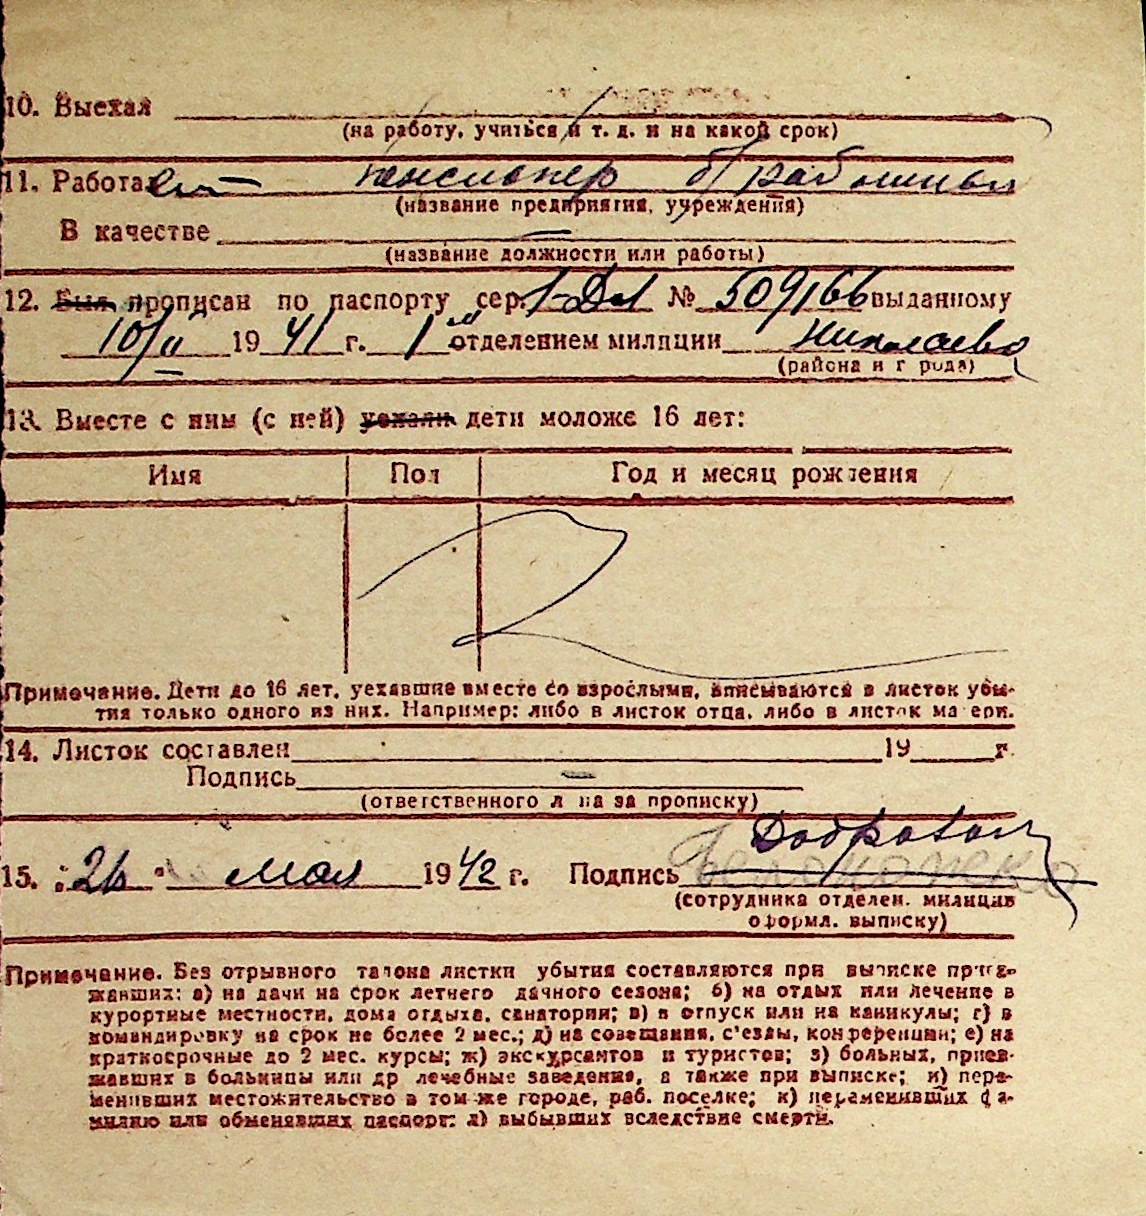 10. Выехал
(на работу, учиться и т. д. и на какой срок)
11. Работает — пенсионер б/
(название предприятия, учреждения)
В качестве —
(название должности или работы)
12. Был прописан по паспорту сер. № 509166 выданному
10/II 1941 г. 1 отделением милиции Николаево
(района и города)
13. Вместе с ним (с ней) уехали дети моложе 16 лет:
Имя Пол Год и месяц рождения
Примечание. Дети до 16 лет, уехавшие вместе со взрослыми, вписываются в листок убы-
тия только одного из них. Например: либо в листок отца, либо в листок матери.
14. Листок составлен 19 г.
Подпись —
(ответственного лица за прописку)
15. "26" мая 1942 г. Подпись
(сотрудника отделен. милиции
оформл. выписку)
Примечание. Без отрывного талона листки убытия составляются при выписке приез-
жавших: а) на дачи на срок летнего дачного сезона; б) на отдых или лечение в
курортные местности, дома отдыха, санатории; в) в отпуск или на каникулы; г) в
командировку на срок не более 2 мес.; д) на совещания, с'езды, конференции; е) на
краткосрочные до 2 мес. курсы; ж) экскурсантов и туристов; з) больных, приез-
жавших в больницы или др лечебные заведения, а также при выписке; и) пере-
менивших местожительство в том же городе, раб. поселке; к) переменивших фа-
милию или обменявших паспорт; л) выбывших вследствие смерти.